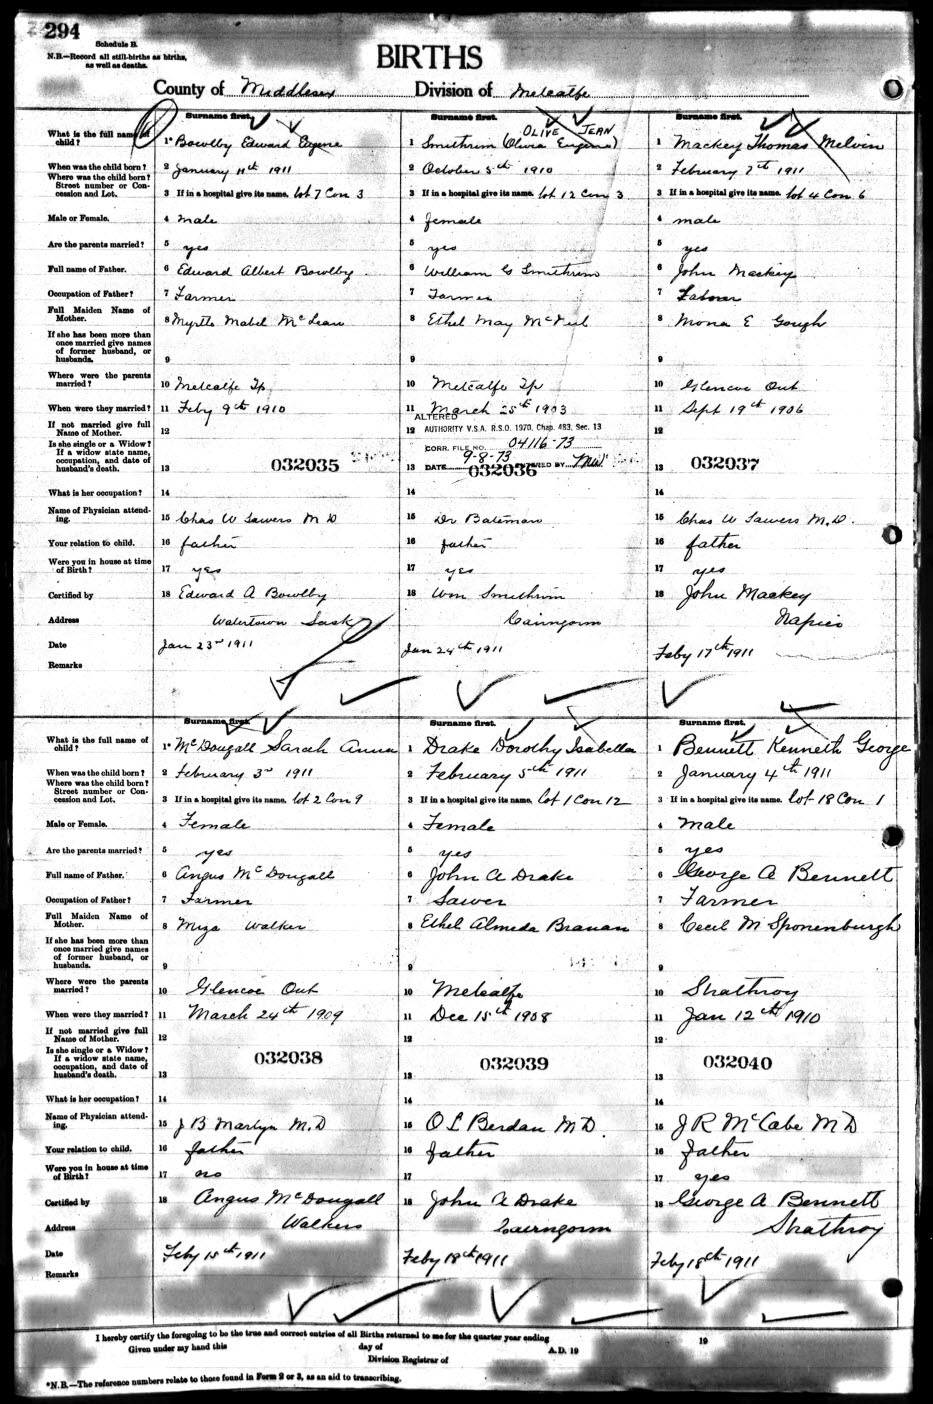 294
Schedule B.
N.B.—Record all still-births as births, as well as deaths.
BIRTHS
County of Middlesex Division of Metcalfe
Surname first. Surname first. Surname first.
OLIVE JEAN
What is the full name of child? 1* Bowlby Edward Eugene 1 Smithrim (Olivia Eugena) 1 Mackey Thomas Melvin
When was the child born? 2 January 11th 1911 2 October 5th 1910 2 February 7th 1911
Where was the child born? Street number or Concession and Lot. 3 If in a hospital give its name. Lot 7 Con 3 3 If in a hospital give its name. Lot 12 Con 3 3 If in a hospital give its name. Lot 4 Con 6
Male or Female. 4 male 4 female 4 male
Are the parents married? 5 yes 5 yes 5 yes
Full name of Father. 6 Edward Albert Bowlby 6 William G Smithrim 6 John Mackey
Occupation of Father? 7 Farmer 7 Farmer 7 Laborer
Full Maiden Name of Mother. 8 Myrtle Mabel McLean 8 Ethel May 8 Mona E Gough
If she has been more than once married give names of former husband, or husbands. 9 9 9
Where were the parents married? 10 Metcalfe Tp 10 Metcalfe Tp 10 Glencoe Ont
When were they married? 11 Feby 9th 1910 11 March 25th 1903 11 Sept 19th 1906
ALTERED
If not married give full Name of Mother. 12 12 AUTHORITY V.S.A. R.S.O. 1970, Chap. 483, Sec. 13 12
CORR. FILE NO. 04116-73
Is she single or a Widow? If a widow state name, occupation, and date of husband's death. 13 032035 13 DATE 9-8-73 ENTERED BY 032036 13 032037
What is her occupation? 14 14 14
Name of Physician attending. 15 Chas W Sawers M D 15 Dr Bateman 15 Chas W Sawers M.D.
Your relation to child. 16 father 16 father 16 father
Were you in house at time of Birth? 17 yes 17 yes 17 yes
Certified by 18 Edward A Bowlby 18 Wm Smithrim 18 John Mackey
Address Watertown Sask Cairngorm Napier
Date Jan 23rd 1911 Jan 24th 1911 Feby 17th 1911
Remarks
Surname first. Surname first. Surname first.
What is the full name of child? 1* McDougall Sarah Anna 1 Drake Dorothy Isabella 1 Bennett Kenneth George
When was the child born? 2 February 3rd 1911 2 February 5th 1911 2 January 4th 1911
Where was the child born? Street number or Concession and Lot. 3 If in a hospital give its name. Lot 2 Con 9 3 If in a hospital give its name. Lot 1 Con 12 3 If in a hospital give its name. Lot 18 Con 1
Male or Female. 4 Female 4 Female 4 Male
Are the parents married? 5 yes 5 yes 5 yes
Full name of Father. 6 Angus McDougall 6 John A Drake 6 George A Bennett
Occupation of Father? 7 Farmer 7 Sawer 7 Farmer
Full Maiden Name of Mother. 8 Walker 8 Ethel Almeda Branan 8 Cecil M Sponenburgh
If she has been more than once married give names of former husband, or husbands. 9 9 9
Where were the parents married? 10 Glencoe Ont 10 Metcalfe 10 Strathroy
When were they married? 11 March 24th 1909 11 Dec 15th 1908 11 Jan 12th 1910
If not married give full Name of Mother. 12 12 12
Is she single or a Widow? If a widow state name, occupation, and date of husband's death. 13 032038 13 032039 13 032040
What is her occupation? 14 14 14
Name of Physician attending. 15 J B Martyn M.D 15 O L Berdan M D. 15 J R McCabe M D
Your relation to child. 16 father 16 father 16 father
Were you in house at time of Birth? 17 no 17 17 yes
Certified by 18 Angus McDougall 18 John A Drake 18 George A Bennett
Address Walkers Cairngorm Strathroy
Date Feby 15th 1911 Feby 18th 1911 Feby 18th 1911
Remarks
I hereby certify the foregoing to be the true and correct entries of all Births returned to me for the quarter year ending 19
Given under my hand this day of A.D. 19
Division Registrar of
*N.B.—The reference numbers relate to those found in Form 2 or 3, as an aid to transcribing.